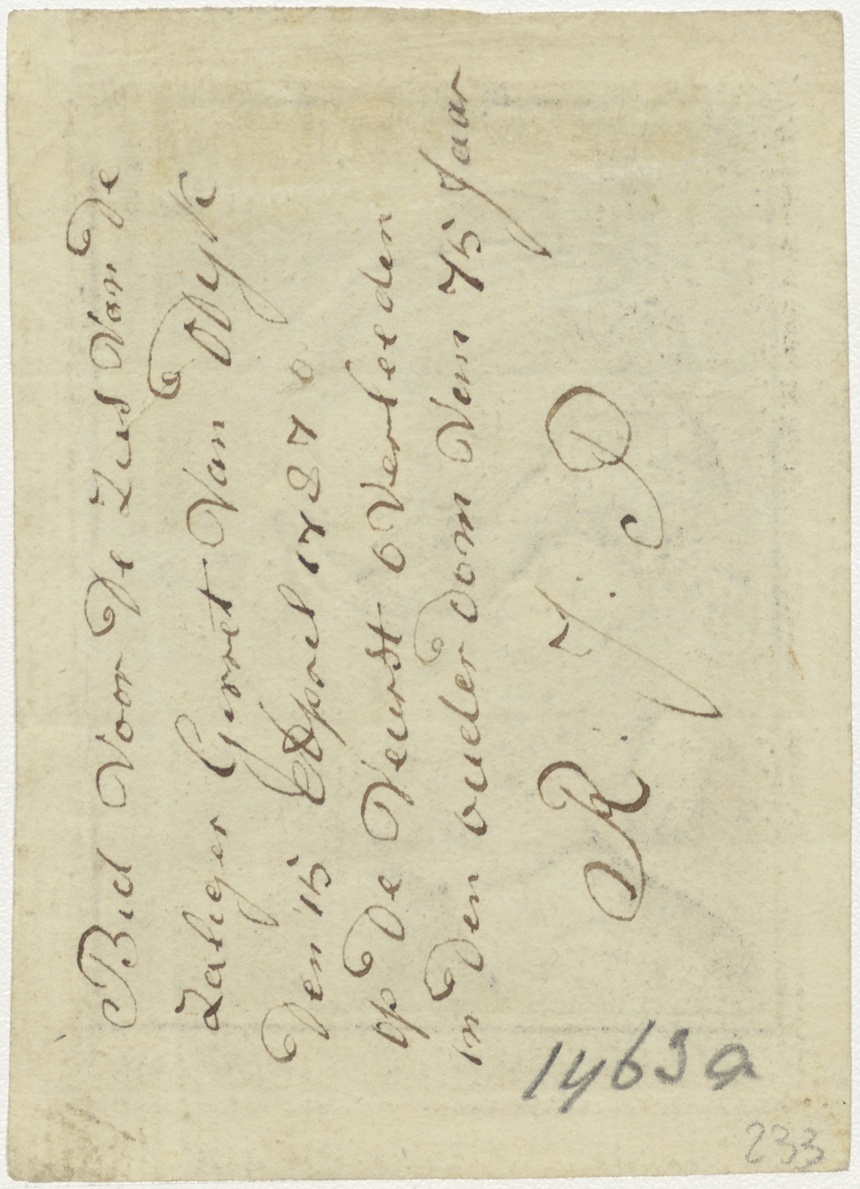 Bid Voor De Ziel Van De
Zaliger Gerret Van Dijk
Den 15 April 1787
op De Veurst oVerleeden
in Den ouderdom Van 75 Jaar
R. J. P
1463 a
233